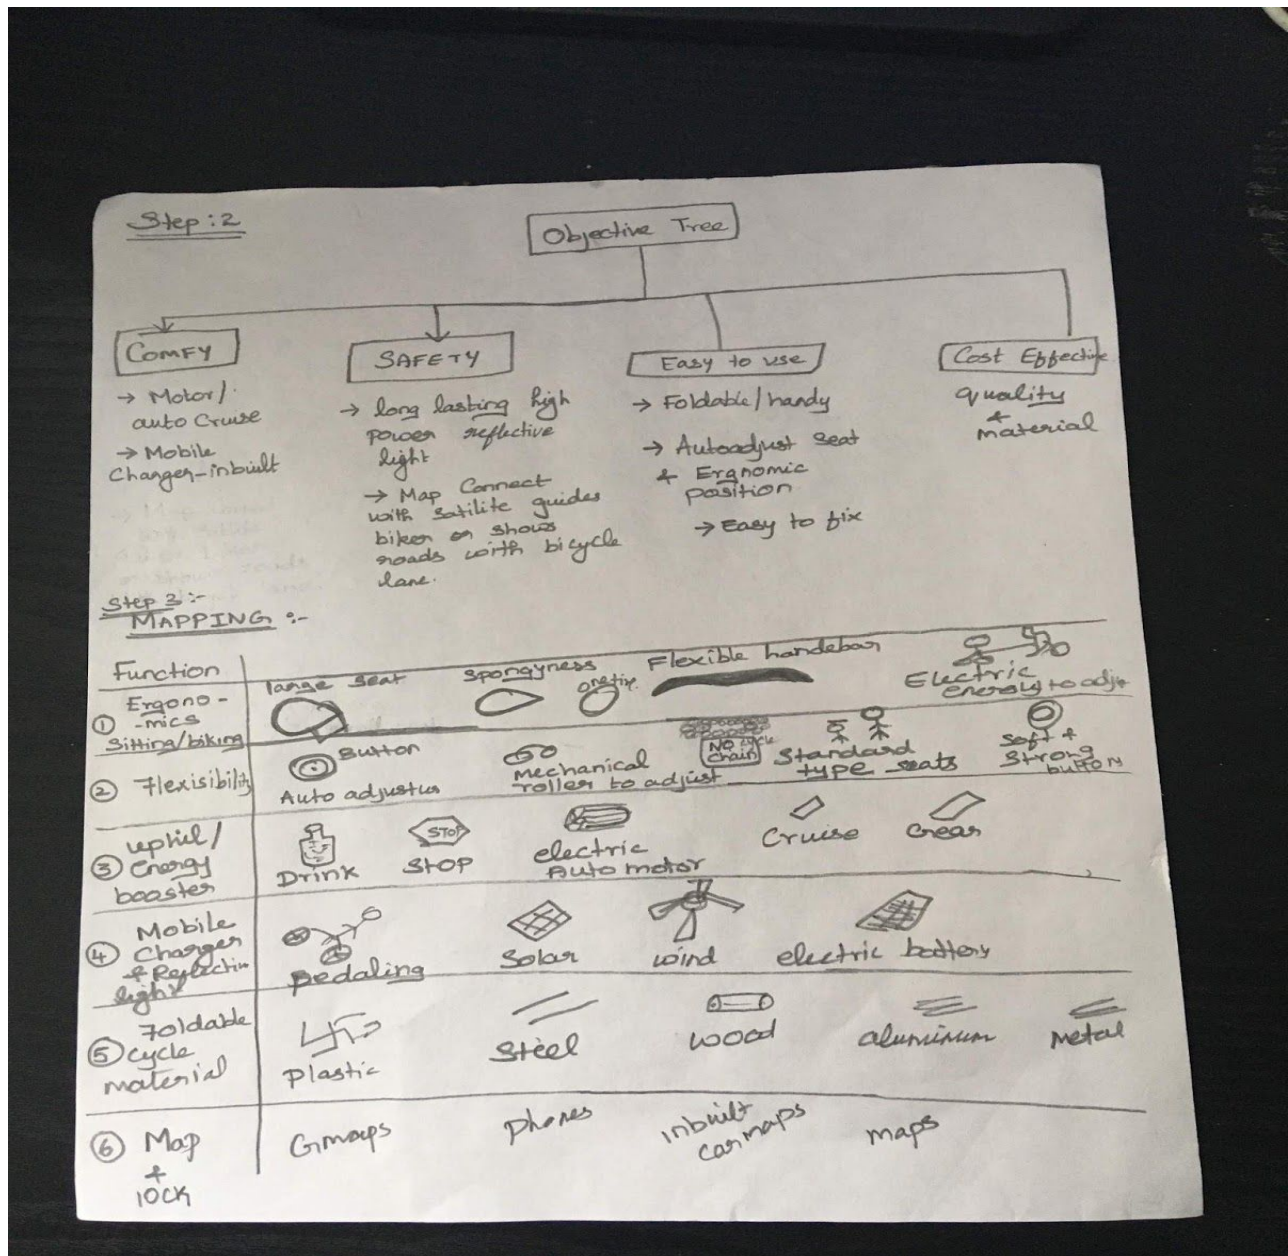 Step:2
Objective Tree
COMFY
→ Motor/
auto Cruise
→ Mobile
Charger-inbuilt
SAFETY
→ long lasting high
power reflective
light
→ Map Connect
with Satilite guides
biker or shows
roads with bicycle
lane.
Easy to use
→ Foldable/handy
→ Autoadjust Seat
& Ergnomic
position
→ Easy to fix
Cost Effective
quality
&
material
Step 3:-
MAPPING :-
Function
① Ergono-
-mics
Sitting/biking
large seat
Spongyness
Flexible handebar
Electric
energy to adju
② Flexisibility
Button
Auto adjustus
Mechanical
roller to adjust
NO cycle
Chain
Standard
type seats
Soft &
Strong
button
③ uphil/
energy
booster
Drink
STOP
STOP
electric
Auto motor
Cruise
Gear
④ Mobile
Charger
& Reflectin
light
pedaling
Solar
wind
electric battery
⑤ Foldable
cycle
material
plastic
Steel
wood
aluminum
Metal
⑥ Map
&
lock
Gmaps
phones
inbuilt
carmaps
maps